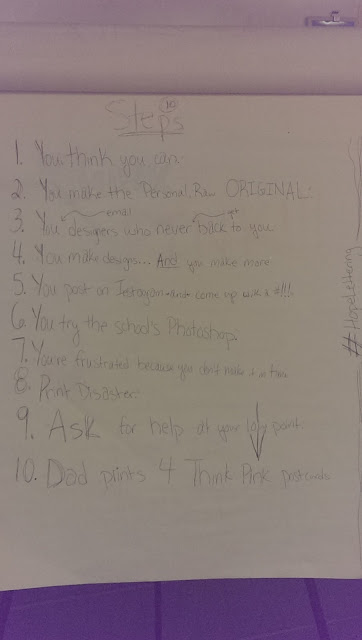 10
Steps
1. You think you can.
2. You make the Personal Raw ORIGINAL.
email get
3. You designers who never back to you.
4. You make designs... And you make more
5. You post on come up with a #!!!
6. You try the school's Photoshop
7. You're frustrated because you don't make it in time
8. Print Disaster.
9. Ask for help at your low point.
10. Dad prints 4 Think Pink postcards
#HopeLettering